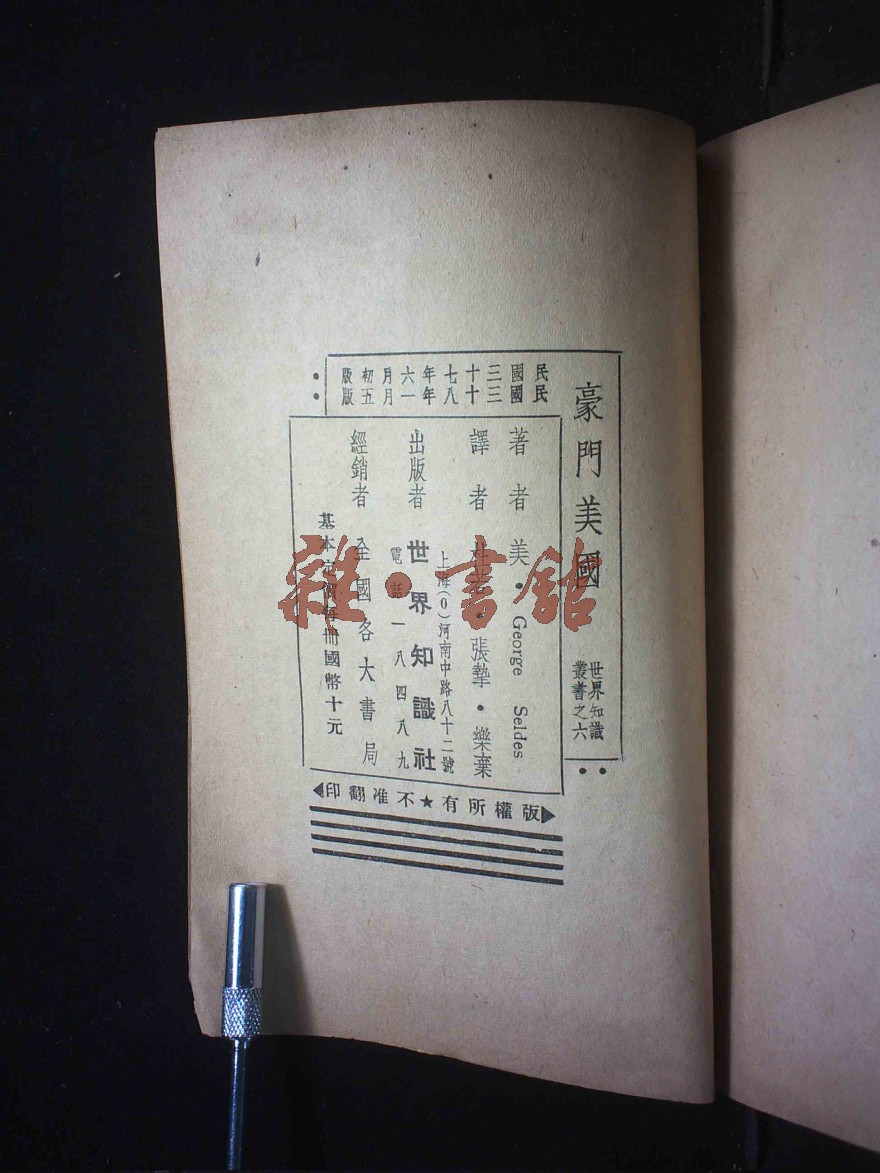 豪門美國
世界知識
叢書之六
民國三十七年六月初版
民國三十八年一月五版
著者 美・George Seldes
譯者 ・張摯・樂棄
出版者 世界知識社
上海(0)河南中路八十二號
電話一八四八九
經銷者 全國各大書局
基本定價每冊國幣十元
版權所有★不准翻印
雜・書館